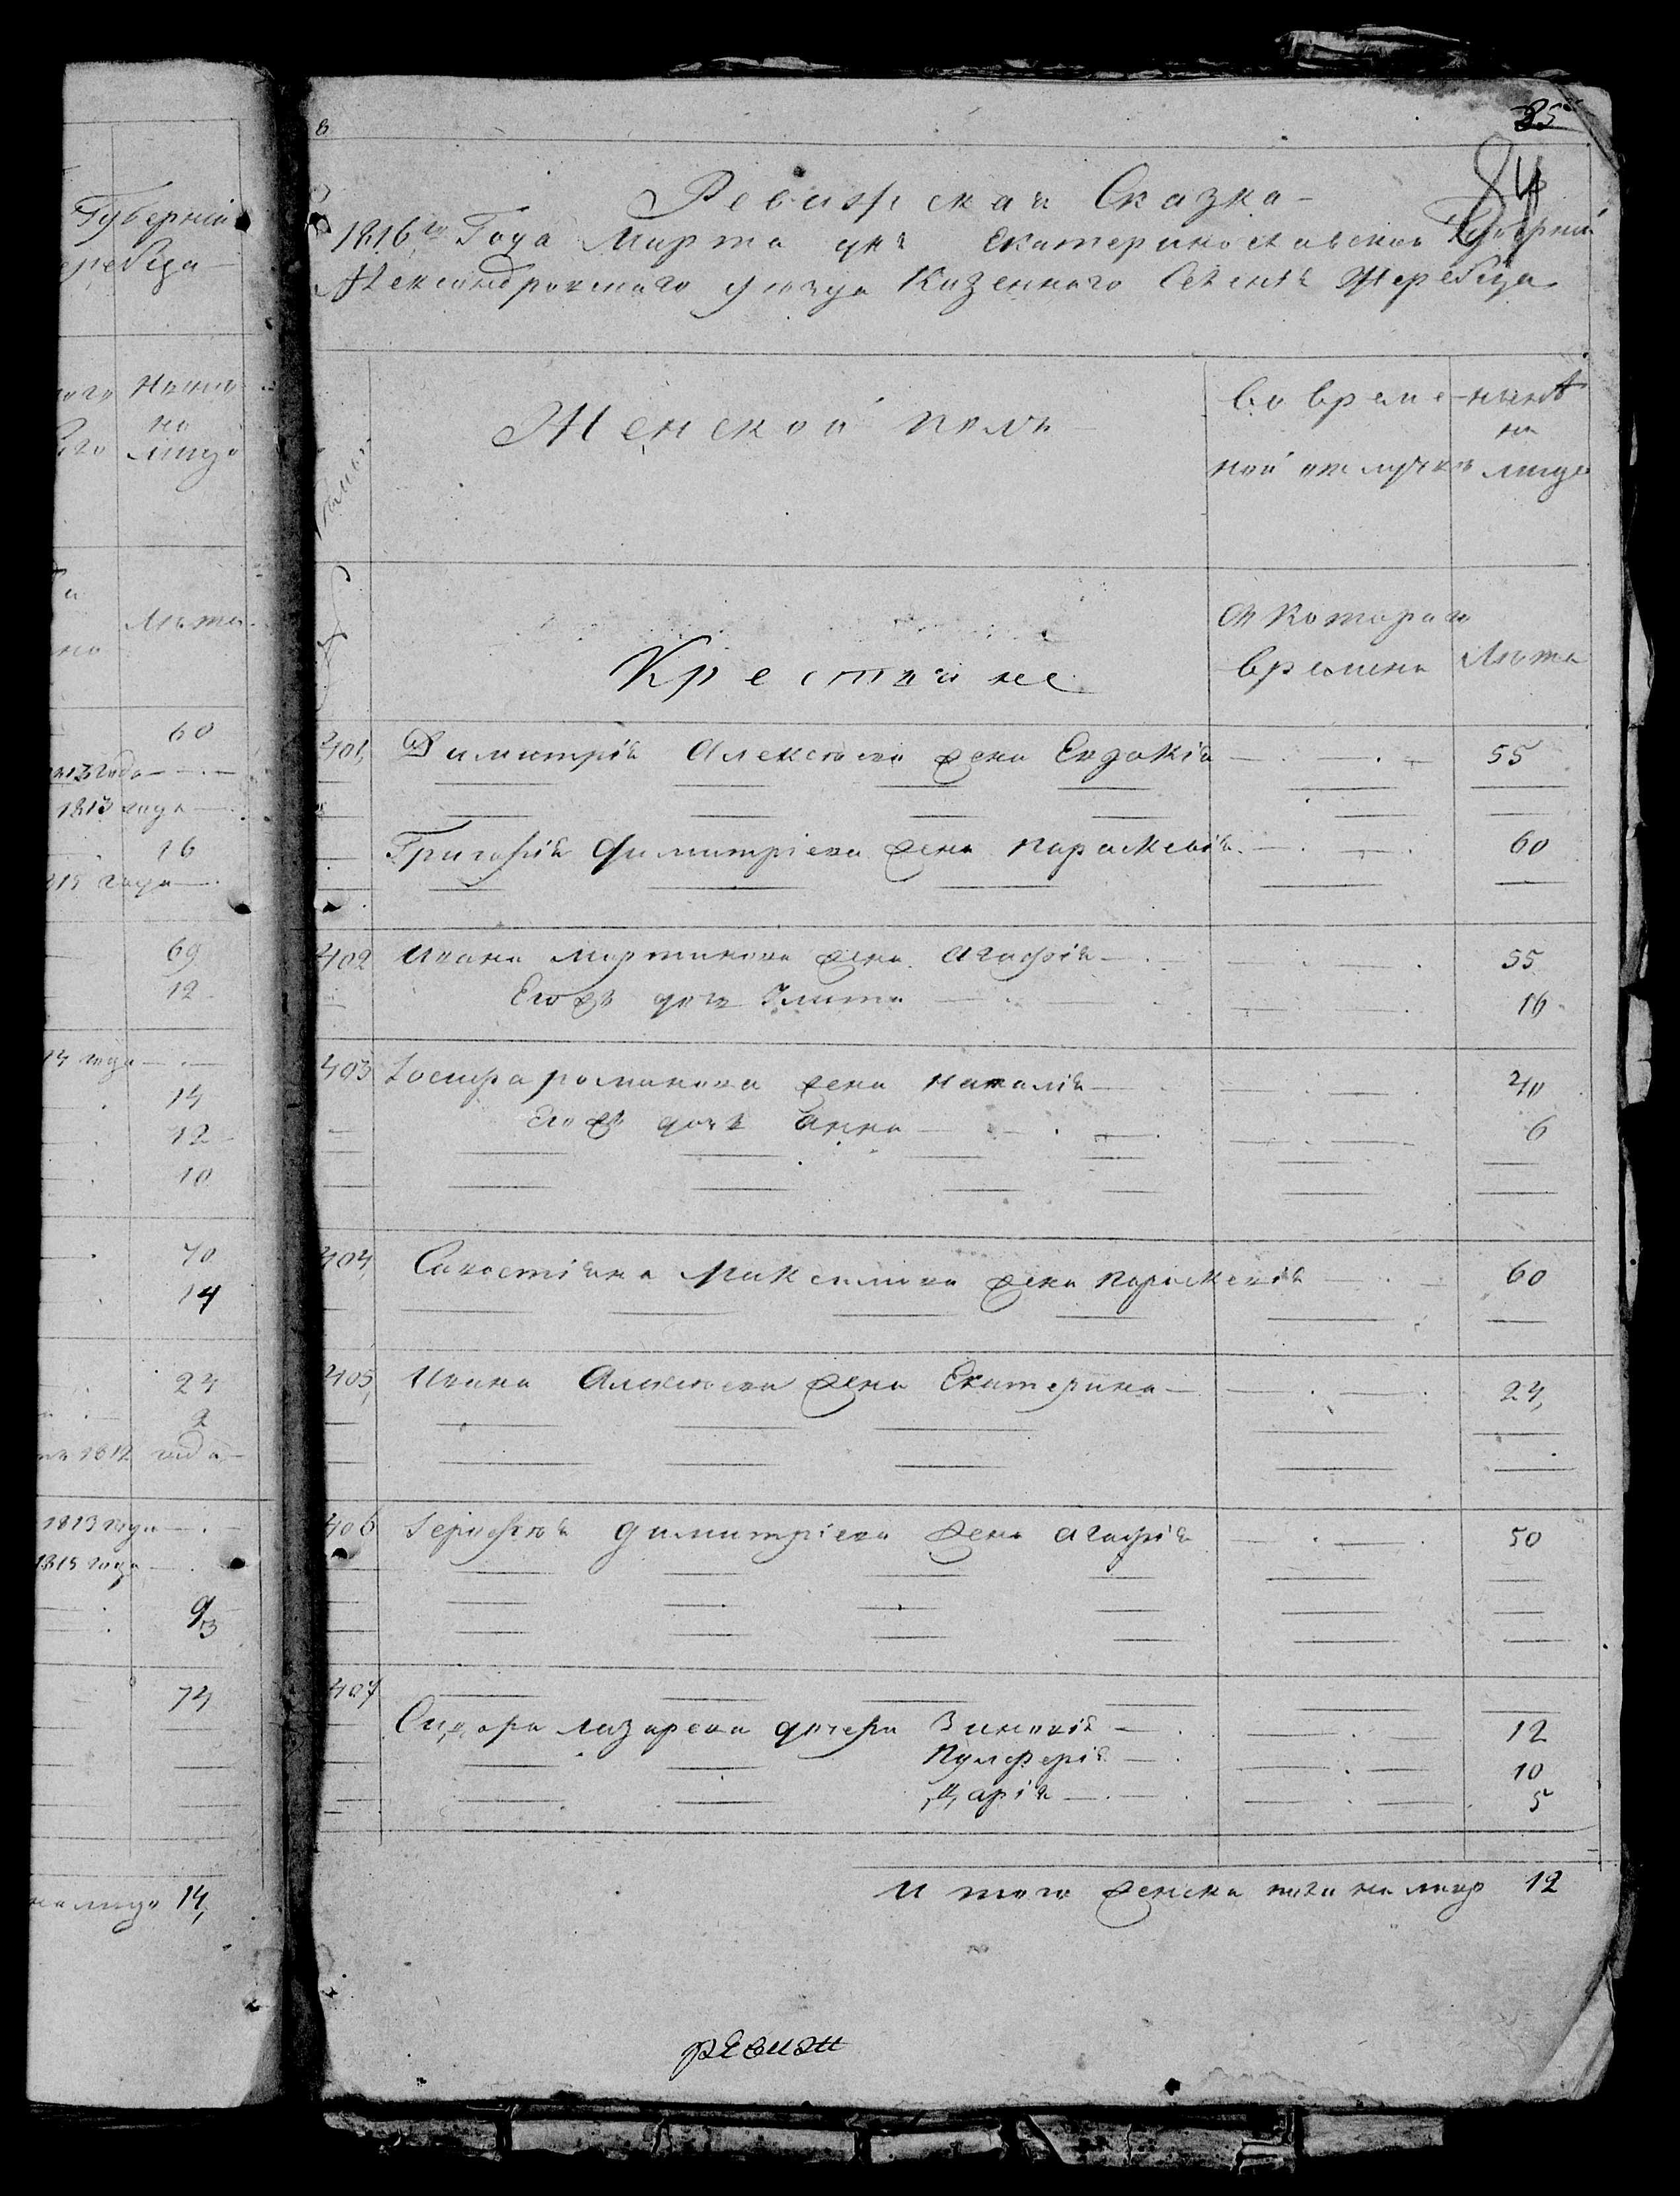 Губерній
еребца
Нынѣ
на
лицо
Лѣта
60
1813 года
1813 года
16
1815 года
69
12
14 года
14
12
10
70
14
24
2
1812 года
1813 года
1815 года
9
74
на лицо 14,
8
35
84
Ревизская Сказка
1816го Года Марта дня Екатеринославской Губерніи
Александровскаго уѣзда Казеннаго Селенія Жеребца
Женской полъ
Во време-
ной отлучкѣ
нынѣ
на
лицо
Крестьяне
Съ котораго
времени
Лѣта
401, Димитрія Алексѣева жена Евдокія 55
Григорія Димитріева жена Параскевія 60
402 Ивана Мартинова жена Агафія 55
Его же дочь Улита 16
403 Іосифа Романова жена Наталія 40
Его же дочь Анна 6
404, Савостіяна Максимова жена Параскевія 60
405, Ивана Алексѣева жена Екатерина 24,
406 Димитріева жена Агафія 50
407
Сидора Лазарева дочери Зиновія 12
Пулхерія 10
Дарія 5
И того женска пола на лицо 12
ревиж